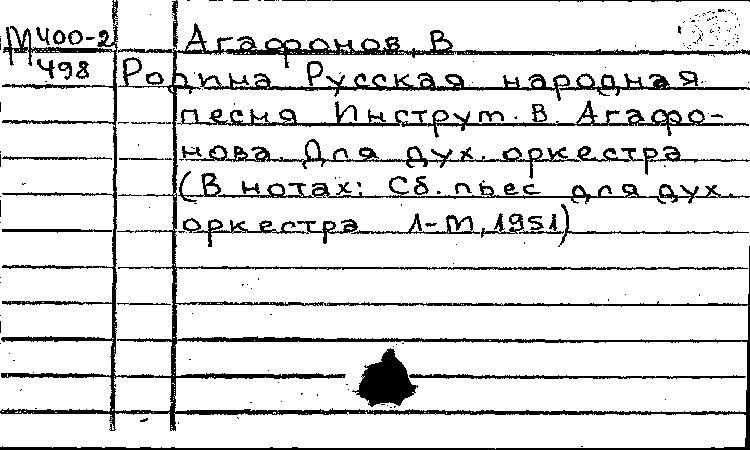 М 400-2 Агафонов, В
498 Родина Русская народная
песня Инструм. В. Агафо-
нова. Для дух. оркестра
(В нотах: Сб. пьес для дух.
оркестра 1-М, 1951)